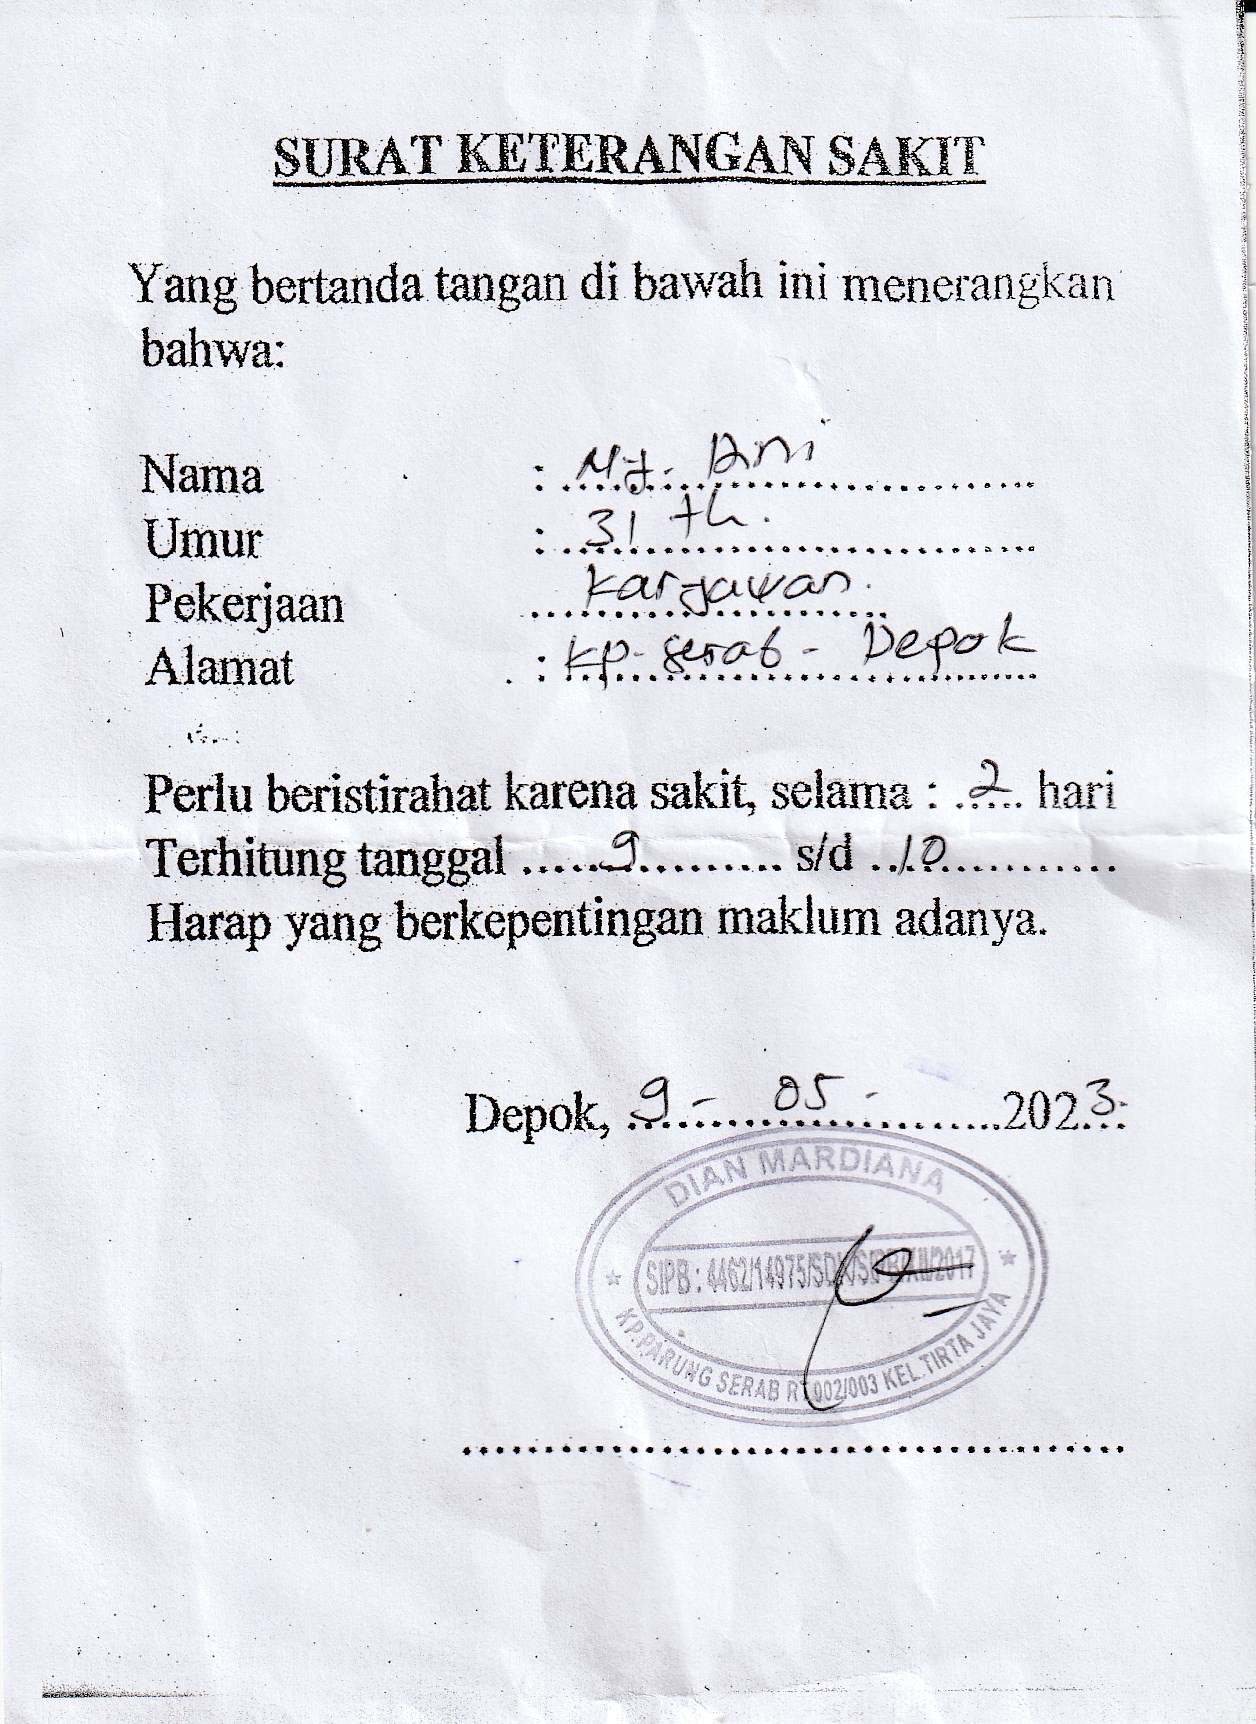 SURAT KETERANGAN SAKIT
Yang bertanda tangan di bawah ini menerangkan
bahwa:
Nama : Ny. Ani
Umur : 31 th.
Pekerjaan Karyawan.
Alamat : Kp. Serab - Depok
Perlu beristirahat karena sakit, selama : 2 hari
Terhitung tanggal 9 s/d 10
Harap yang berkepentingan maklum adanya.
Depok, 9 - 05 - 2023.
DIAN MARDIANA
SIPB : 4462/14975/SDK/SIPB/XII/2017
KP. PARUNG SERAB RT.002/003 KEL. TIRTA JAYA